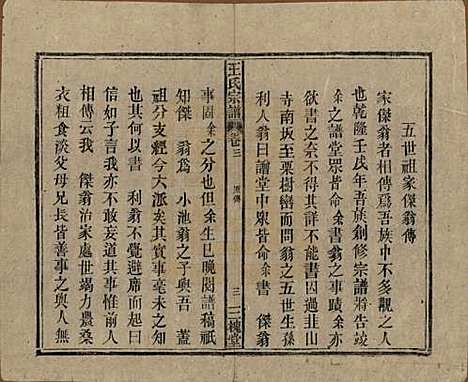 五世祖家傑翁傳
家傑翁者相傳爲吾族中不多覯之人
也乾隆壬戌年吾族創修宗譜將告竣
余之譜堂眾皆命余書傑翁之事蹟余
欲書之奈不得其詳不能書因過韭山
寺南坂至栗樹崾而問翁之五世生孫
利人翁曰譜堂中眾皆命余書　傑翁
王氏宗譜
卷三
傳
三
三槐堂
事固余之分也但余生已晚閱譜稿祇
知傑　翁爲　小池翁之子與吾　蓋
祖分支經今六派矣然其實事蓁未有聞
也其何以書　利翁不覺避席而起曰
信如子言我亦不敢妄道其事惟前人
相傳云我　傑翁治家處世竭力農桑
衣粗食淡父母兄長皆善事之與人無